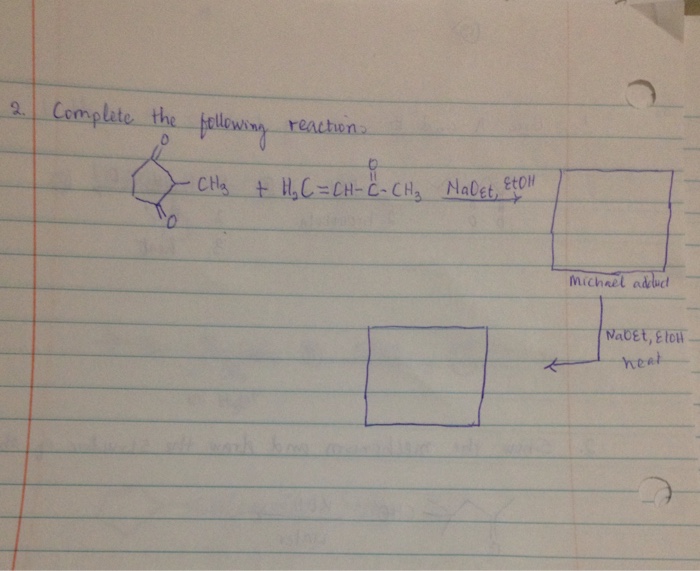 2. Complete the following reaction.
O
O
- CH₃ + H₂C=CH-C-CH₃ NaOEt, EtOH
O
Michael adduct
NaOEt, EtOH
heat